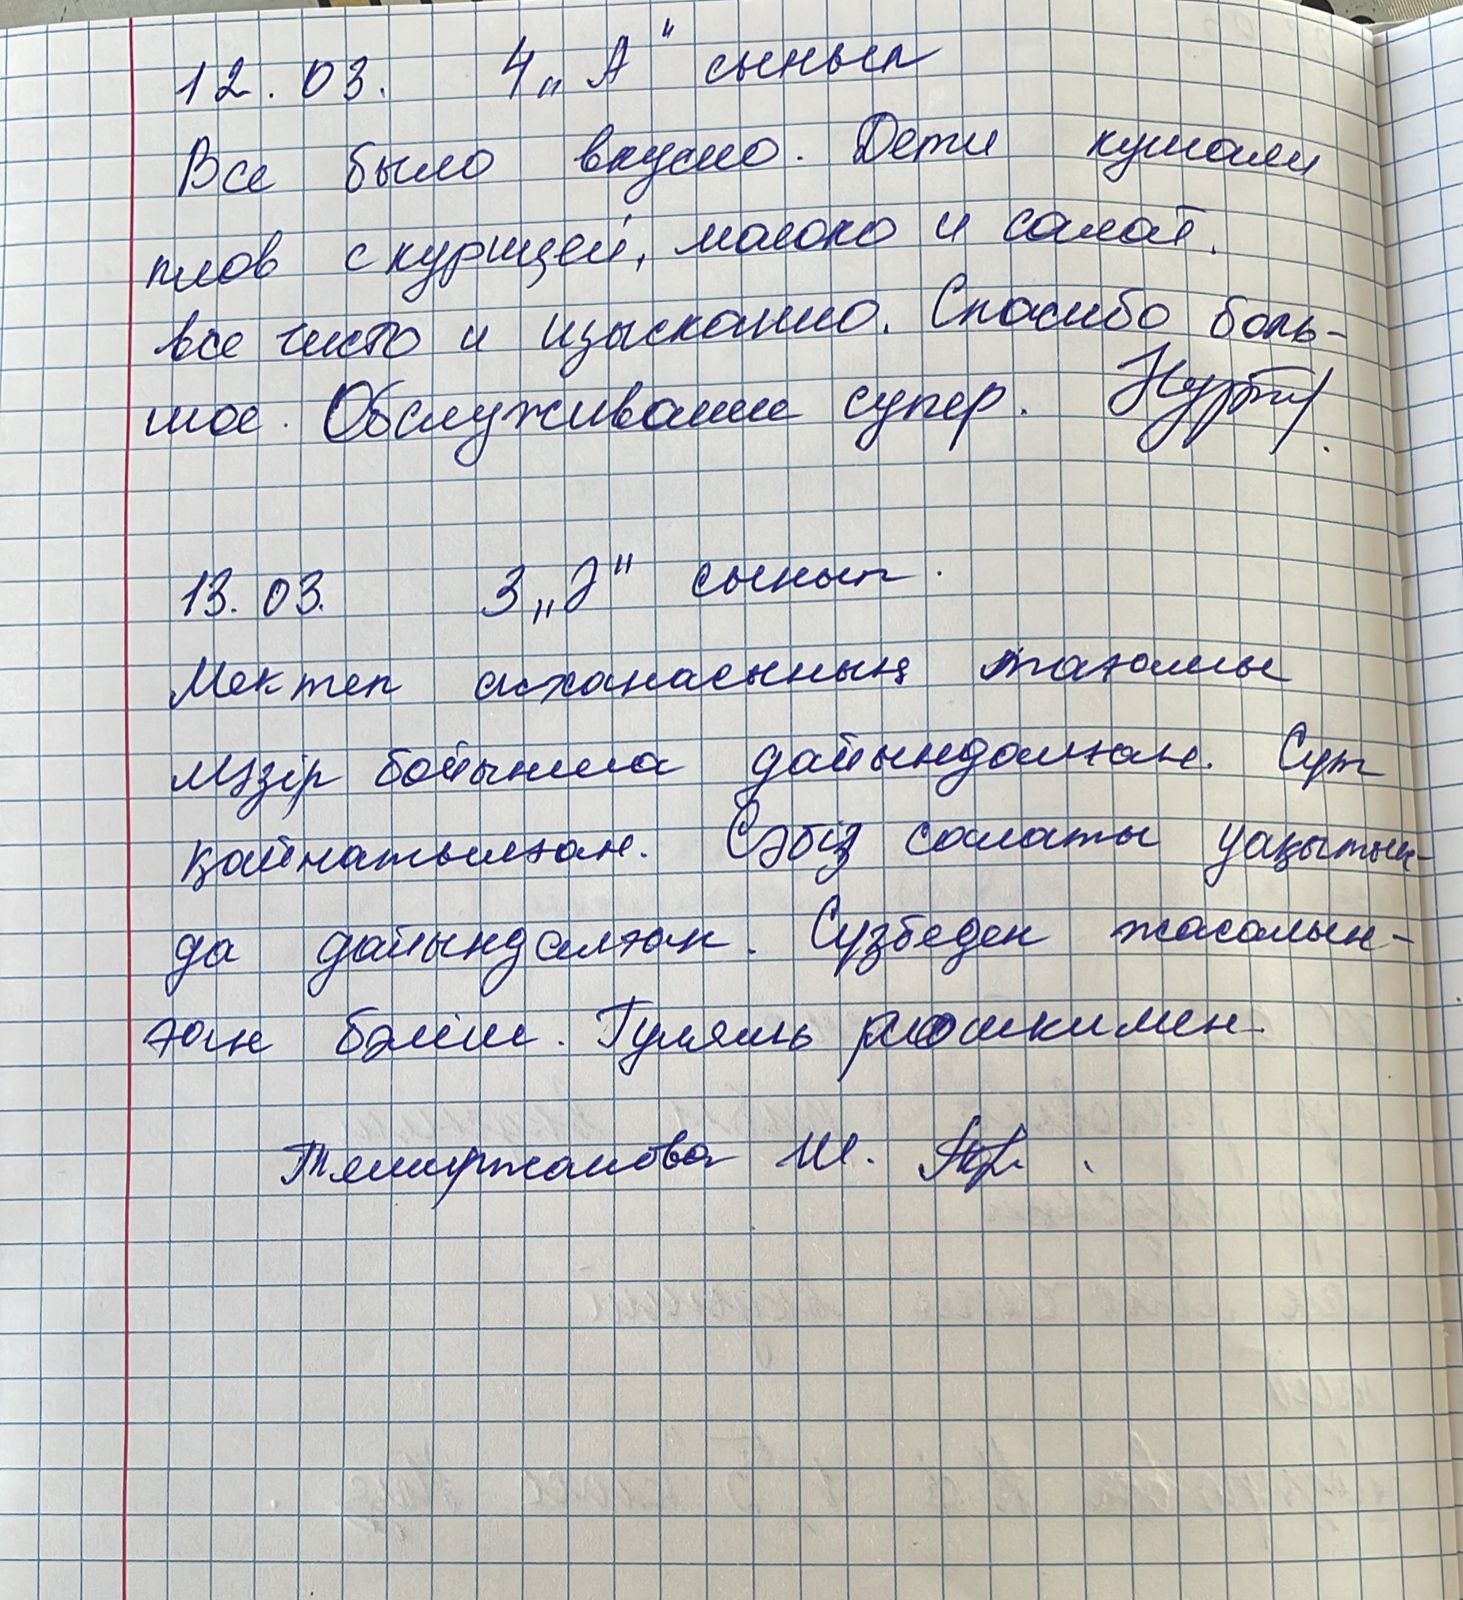 12.03. 4 „А" сынып
Все было вкусно. Дети кушали
плов с курицей, молоко и салат.
все чисто и изысканно. Спасибо боль-
шое. Обслуживание супер.
13.03. 3 „Ә" сынып.
Мектеп асханасының тағамы
Мәзір бойынша дайындалған. Сүт
қайнатылған. Сәбіз салаты уақытын-
да дайындалған. Сүзбеден жасалын-
ған бәліш. Гуляшь рожкимен.
Темиржанова Ш.